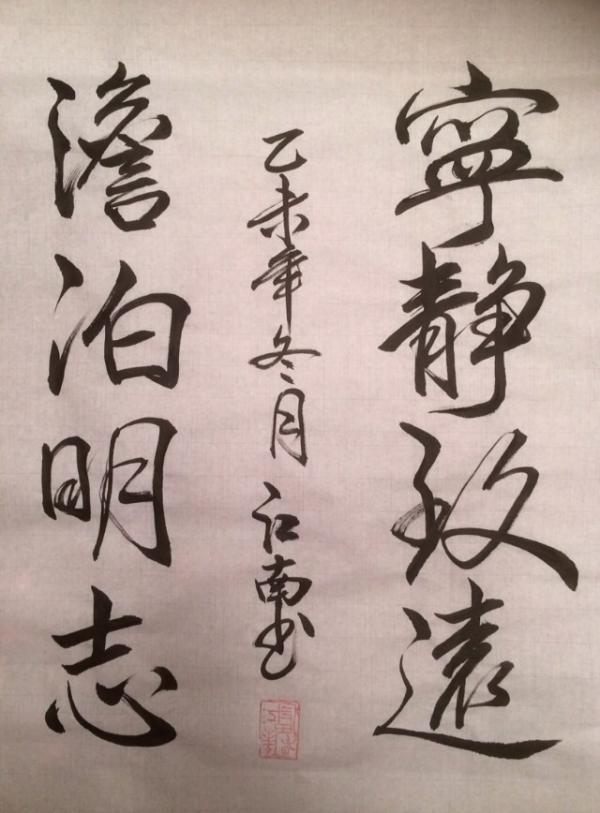 寧靜致遠
乙未年冬月江南書
澹泊明志